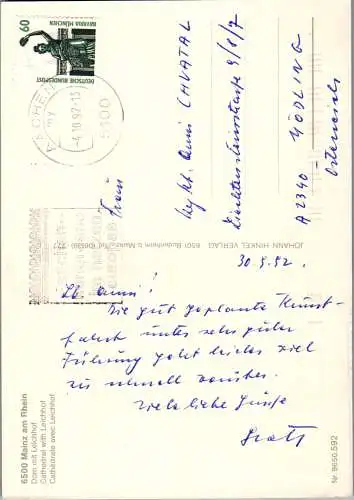 60
BAVARIA MÜNCHEN
DEUTSCHE BUNDESPOST
AACHEN
-4.10.92-13
5100
my
Frau
Anni CHVATAL
Liechtensteinstrasse 9/8/7
A 2340 - MÖDLING
Österreich
JOHANN HINKEL VERLAG
6501 Budenheim b. Mainz
30.9.92.
Lb. Anni!
Die gut geplante Kunst-
fahrt unter sehr guter
Führung geht leider viel
zu schnell vorüber.
Viele liebe Grüße
6500 Mainz am Rhein
Dom mit Leichhof
Cathedral with Leichhof
Cathédrale avec Leichhof
Nr. 9650.592